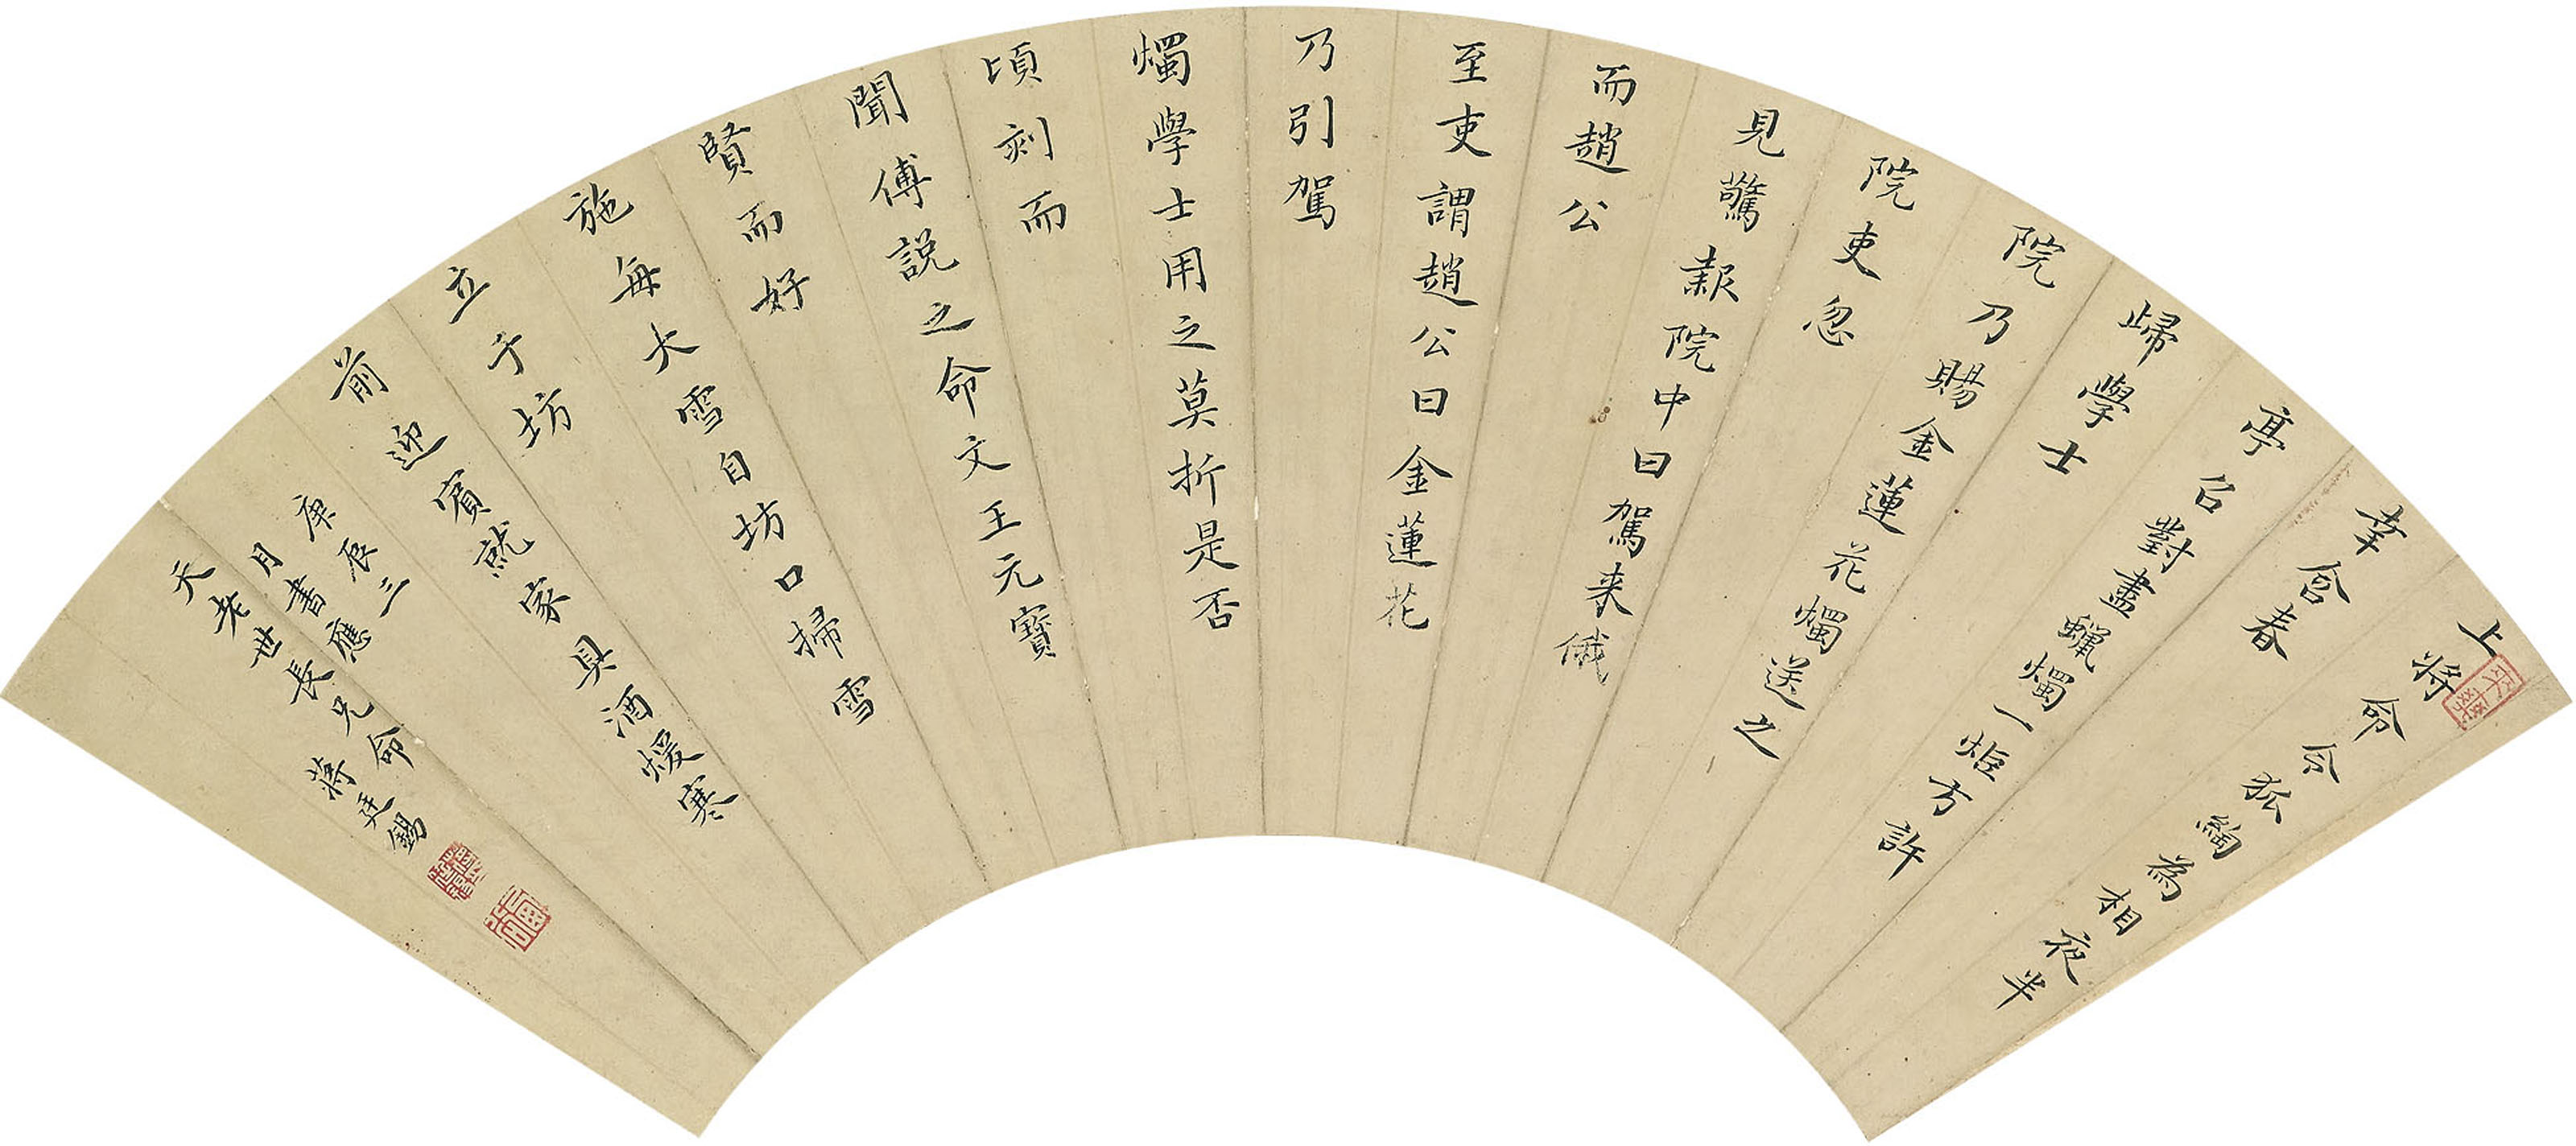 上將命令狐綯為相夜半
幸含春
亭召對盡蠟燭一炬方許
歸學士
院乃賜金蓮花燭送之
院吏忽
見驚報院中曰駕来俄
而趙公
至吏謂趙公曰金蓮花
乃引駕
燭學士用之莫折是否
頃刻而
聞傅說之命文王元寶
賢而好
施每大雪自坊口掃雪
立于坊
前迎賓就家具酒煖寒
庚辰三
月書應
天老世長兄命
蔣廷錫